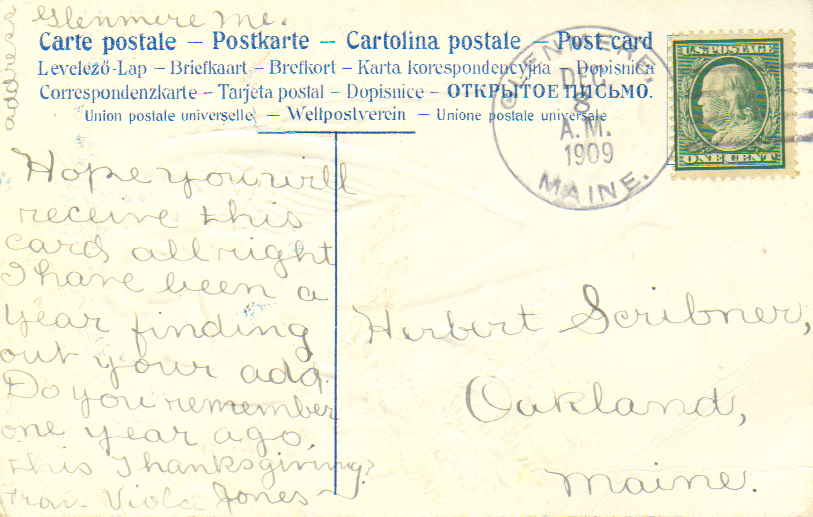 address
Glenmere Me.
Carte postale – Postkarte – Cartolina postale – Post card
Levelező-Lap – Briefkaart – Brefkort – Karta korespondencyjna – Dopisnica
Correspondenzkarte – Tarjeta postal – Dopisnice – ОТКРЫТОЕ ПИСЬМО.
Union postale universelle – Weltpostverein – Unione postale universale
GLENMERE
DEC
8
A.M.
1909
MAINE.
U.S. POSTAGE
ONE CENT
Hope you will
receive this
card allright
I have been a
year finding
out your add.
Do you remember
one year ago,
this Thanksgiving?
from Viola Jones
Herbert Scribner,
Oakland,
Maine.